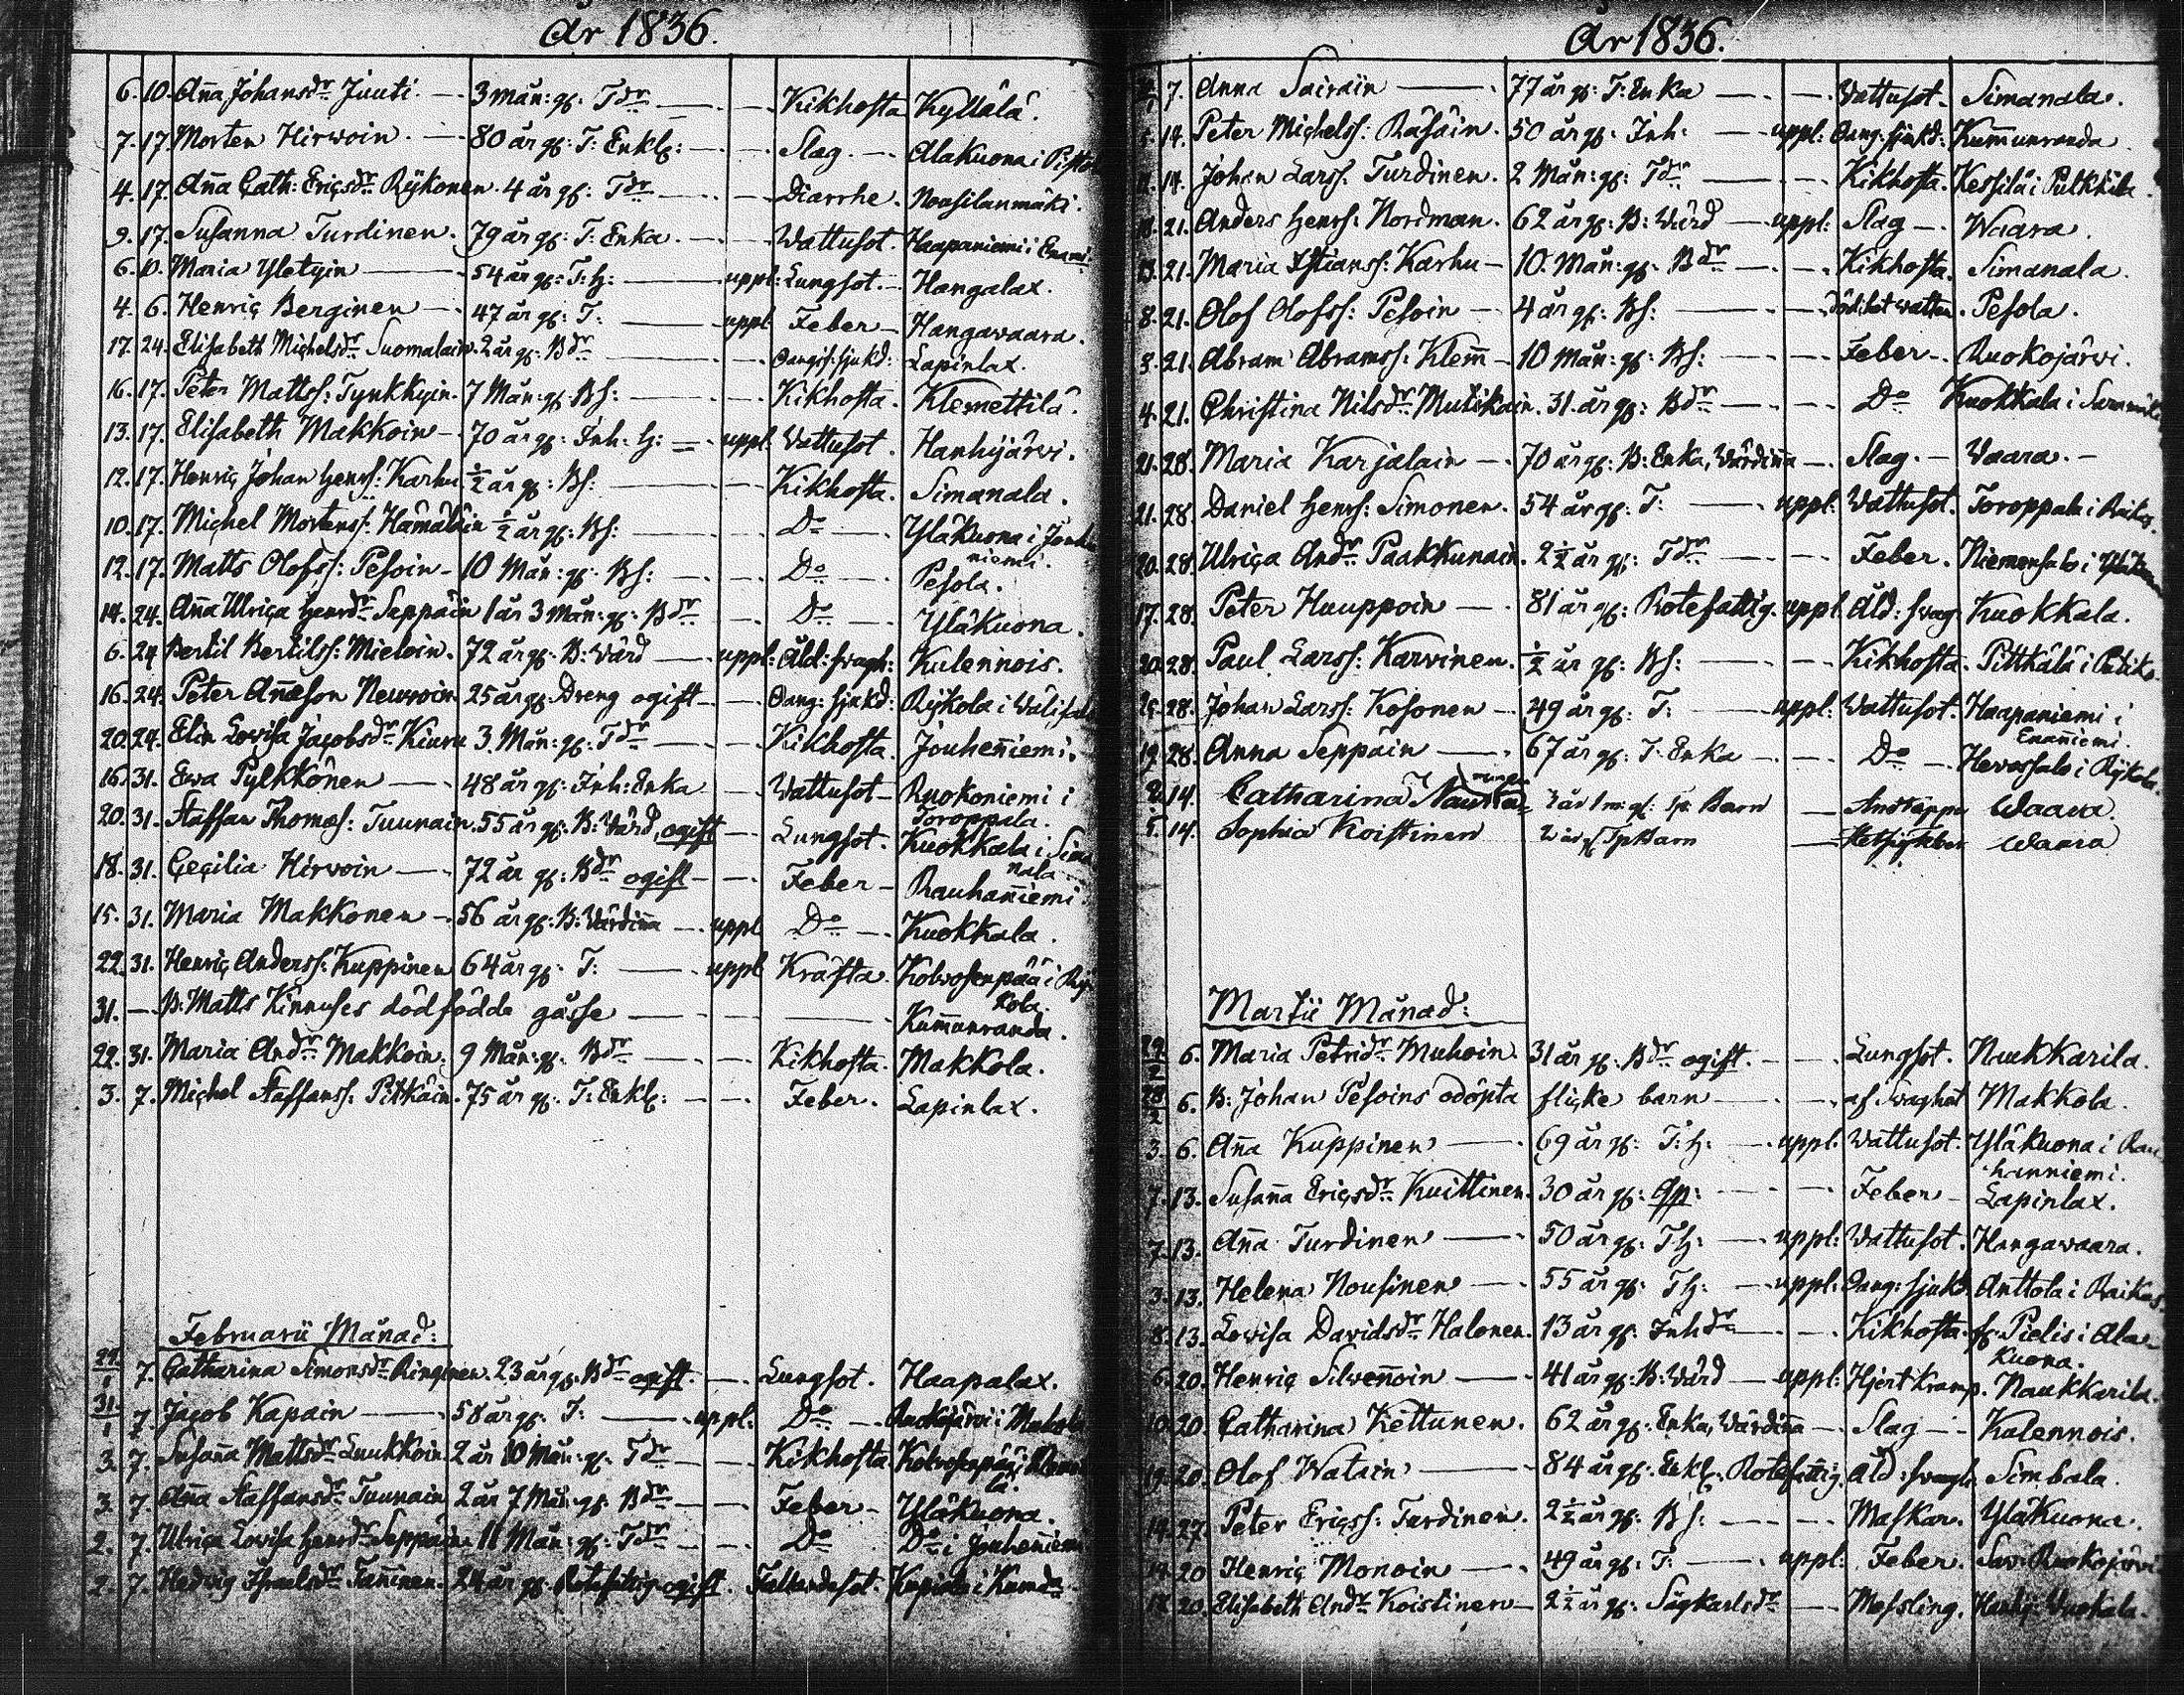 År 1836.
6. 10. Anna Johansdr Juuti. 3 Mån: gl: Tdr Kikhosta Kyllälä.
7. 17. Morten Hirwoin. 80 år gl: T: Enkl: Slag. Alakuona i
4. 17. Anna Cath: Ericsdr Rÿkonen. 4 år gl: Tdr Diarrhe. Nousilanmäki.
9. 17. Susanna Turdinen. 79 år gl: T: Enka. Wattusot. Haapaniemi i
6. 10. Maria Yletyin 54 år gl: T: h: uppl: Lungsot. Hangalax.
4. 6. Henric Berginen 47 år gl: T: uppl Feber Hangawaara.
17. 24. Elisabeth Michelsdr Suomalain. 2 år gl: Bdr Oangif: sjukd: Lapinlax.
16. 17. Peter Mattss: Tynkkyin. 7 Mån: gl: Bs: Kikhosta. Klemettilä.
13. 17. Elisabeth Makkoin 70 år gl: Inh: h: uppl Wattusot. Hanhijärwi.
12. 17. Henric Johan Henrs: Karhu ½ år gl: Bs: Kikhosta. Simanala.
10. 17. Michel Mortenss: Hämäläin ½ år gl: Bs: Do Yläkuona i Jouhe
niemi.
12. 17. Matts Olofss: Pesoin 10 Mån: gl: Bs: Do Pesola.
14. 24. Anna Ulrica Henrsdr Seppäin 1 år 3 Mån: gl: Bdr Do Yläkuona.
6. 24 Bertil Bertilss: Mieloin. 72 år gl: B: Wärd uppl: Åld: swagh: Kulennois.
16. 24. Peter Annæson Neuwoin 25 år gl: Dreng ogift Oang: sjukd: Rÿkola i
20. 24. Elin Lowisa Jacobsdr Kiuru 3. Mån: gl: Tdr Kikhosta. Jouhenniemi.
16. 31. Ewa Pylkkönen 48 år gl: Inh: Enka Wattusot Ruokoniemi i
Toroppala.
20. 31. Staffan Thomæs: Tuunain. 55 år gl: B: Wärd, ogift Lungsot. Kuokkala i Sima
nala
18. 31. Cecilia Hirwoin 72 år gl: Bdr ogift Feber Rauhanniemi
15. 31. Maria Makkonen 56 år gl: B: Wärdinna uppl Do Kuokkala.
22. 31. Henric Anderss: Kuppinen 64 år gl: T: uppl Kräfta. Kolwosenpää i Rÿ
kola.
31. B: Matts Kinnuses dödfödde gåsse Kummunranda.
22. 31. Maria Andr Makkoin. 9 Mån: gl: Bdr Kikhosta. Makkola.
3. 7. Michel Staffanss: Pitkäin. 75 år gl: T: Enkl: Feber. Lapinlax.
Februarii Månad:
29/1 7. Catharina Simonsdr Ringinen. 23 år gl: Bdr ogift. Lungsot. Haapalax.
31/1 7. Jacob Kapain 58 år gl: T: uppl: Do Ruokojärwi i
3. 7. Susanna Mattsdr Luukkoin 2 år 10 Mån: gl: Tdr Kikhosta Kolwosenpää i
lä.
3. 7. Anna Staffansdr Tuunain 2 år 7 Mån: gl: Bdr Feber Yläkuona.
2. 7. Ulrica Lowisa Henrsdr Seppäin 11 Mån: gl: Tdr Do Do i Jouhenniemi
2. 7. Hedwig Israelsdr Tanninen. 24 år gl: Rotefattig ogift. Fallandesot. i
År 1836.
7. Anna Sairain 77 år gl: T: Enka Wattusot. Simanala.
14. Peter Michelss: Räsäin. 50 år gl: Inh: uppl: Oang: sjukd: Kummunranda
14. Johan Larss: Turdinen. 2 Mån: gl: Tdr Kikhosta. Kessilä i Pulkkila
21. Anders Henrs: Nordman. 62 år gl: B: Wärd uppl: Slag Waara.
13. 21. Maria Kstianss: Karhu 10. Mån: gl: Bdr Kikhosta. Simanala.
8. 21. Olof Olofss: Pesoin 4 år gl: Bs: Pesola.
3. 21. Abram Abramss: Klem̄ 10 Mån: gl: Bs: Feber. Ruokojärwi.
4. 21. Christina Nilsdr Mutikain. 31 år gl: Bdr Do Kuokkala i
21. 28. Maria Karjalain 70 år gl: B: Enka, Wärdinna Slag. Waara.
21. 28. Daniel Henrs: Simonen. 54 år gl: T: uppl: Wattusot. Toroppala i
20. 28. Ulrica Andr Paakkunain. 2½ år gl: Tdr Feber. Niemensalo i
17. 28. Peter Hauppoin 81 år gl: Rotefattig. uppl. Åld: swag: Kuokkala.
20. 28. Paul Larss: Karvinen. ½ år gl: Bs: Kikhosta. Pittkälä i
28. Johan Larss: Kosonen 49 år gl: T: uppl: Wattusot. Haapaniemi i
Enanniemi.
19. 28. Anna Seppäin 67 år gl: T: Enka Do Hevossalo i Rÿkola.
14. Catharina 3 år 1 m: gl: Tp: Barn Andtäppa Waara.
5. 14. Sophia Koistinen 2 år gl Tp Barn Waara
Martii Månad:
29/2 6. Maria Petridr Muhoin 31 år gl: Bdr ogift. Lungsot. Naukkarila.
28/2 6. B: Johan Pesoins odöpta flicke barn af Swaghet Makkola.
3. 6. Anna Kuppinen 69 år gl: T: h: uppl: Wattusot. Yläkuona i Rau
hanniemi.
7. 13. Susanna Ericsdr Kuittinen. 30 år gl: Feber Lapinlax.
7. 13. Anna Turdinen 50 år gl: Th: uppl: Wattusot. Hangawaara.
3. 13. Helena Nousinen 55 år gl: Th: uppl: Oang: sjukd. Anttola i
8. 13. Lowisa Davidsdr Halonen. 13 år gl: Inhdr Kikhosta. fr. Pielis i Ala
kuona.
6. 20. Henric Silwennoin 41 år gl: B: Wärd uppl: Hjert kramp. Naukkarila.
10. 20. Catharina Kettunen. 62 år gl: Enka, Wärdinna Slag Kulennois.
19. 20. Olof Watain 84 år gl: Enkl: Rotefattig. Åld: swagh. Simbala.
14. 27. Peter Ericss: Turdinen. 2½ år gl: Bs: Maskar. Yläkuona.
20 Henric Monoin 49 år gl: T: uppl: Feber. Ruokojärwi
20. Elisabeth Andr Koistinen 2½ år gl: Sågkarlsdr Messling.